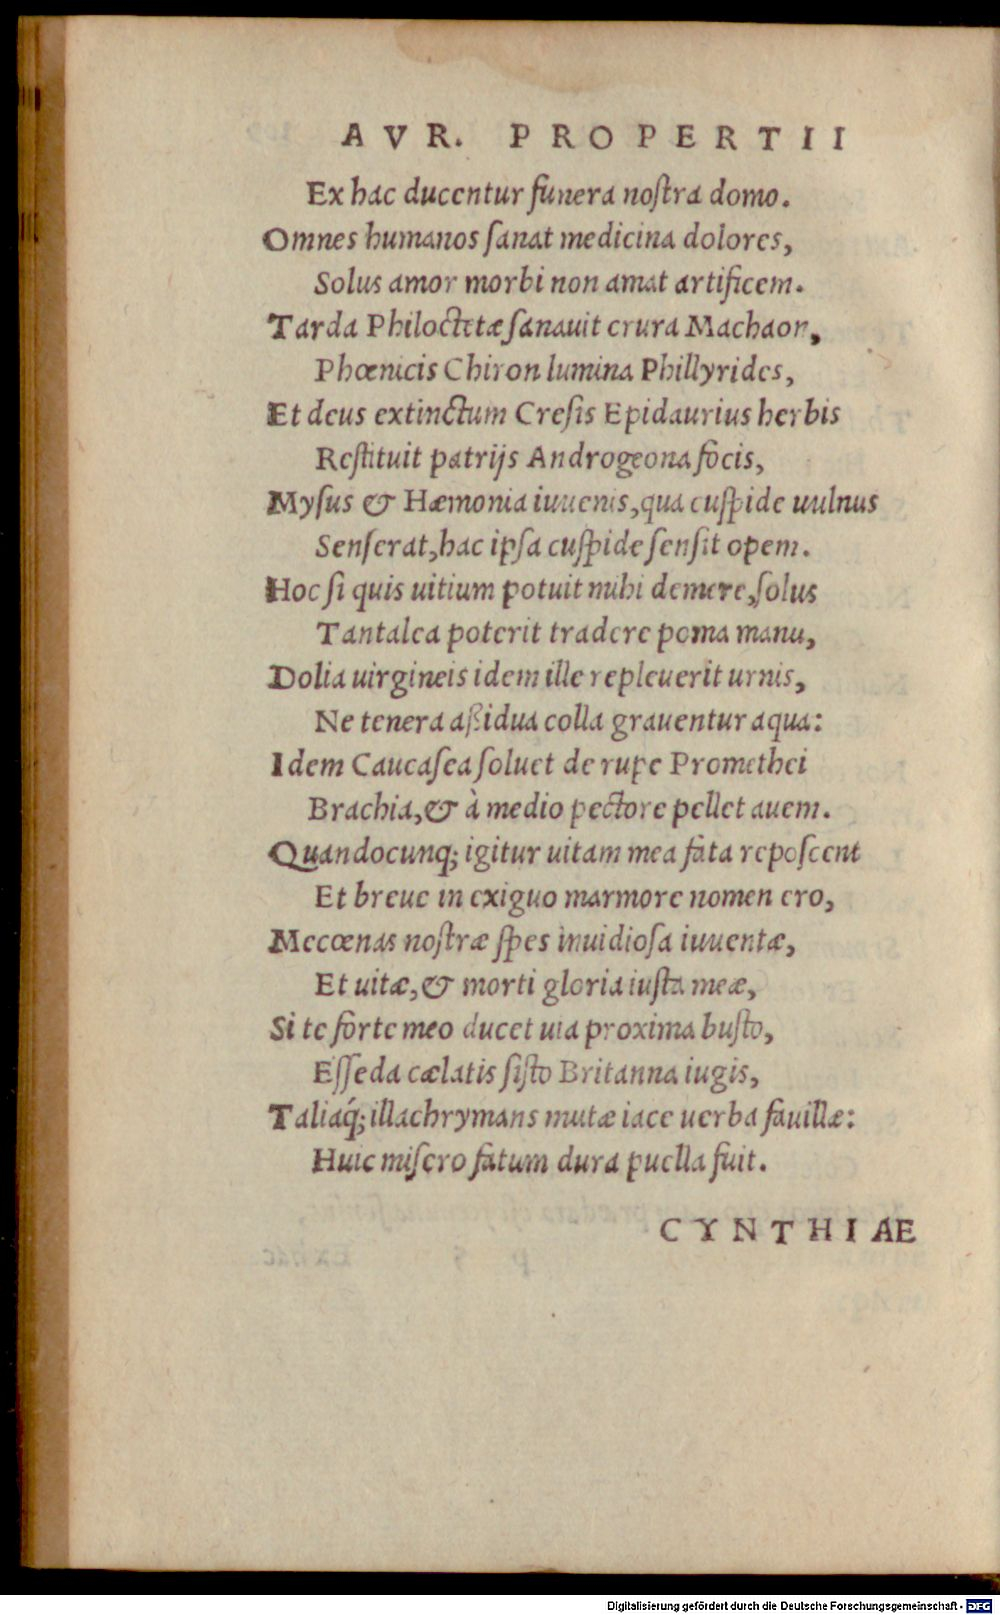 AVR. PROPERTII
Ex hac ducentur funera noſtra domo.
Omnes humanos ſanat medicina dolores,
Solus amor morbi non amat artificem.
Tarda Philoctetæ ſanauit crura Machaon,
Phœnicis Chiron lumina Phillyrides,
Et deus extinctum Creſis Epidaurius herbis
Reſtituit patrijs Androgeona focis,
Myſus & Hæmonia iuuenis, qua cuſpide uulnus
Senſerat, hac ipſa cuſpide ſenſit opem.
Hoc ſi quis uitium potuit mihi demere, ſolus
Tantalea poterit tradere poma manu,
Dolia uirgineis idem ille repleuerit urnis,
Ne tenera aßidua colla grauentur aqua:
Idem Caucaſea ſoluet de rupe Promethei
Brachia, & à medio pectore pellet auem.
Quandocunq; igitur uitam mea fata repoſcent
Et breue in exiguo marmore nomen ero,
Mecœnas noſtræ ſpes inuidioſa iuuentæ,
Et uitæ, & morti gloria iuſta meæ,
Si te forte meo ducet uia proxima buſto,
Eſſeda cælatis ſiſto Britanna iugis,
Taliaq́; illachrymans mutæ iace uerba fauillæ:
Huic miſero fatum dura puella fuit.
CYNTHIAE
Digitalisierung gefördert durch die Deutsche Forschungsgemeinschaft - DFG